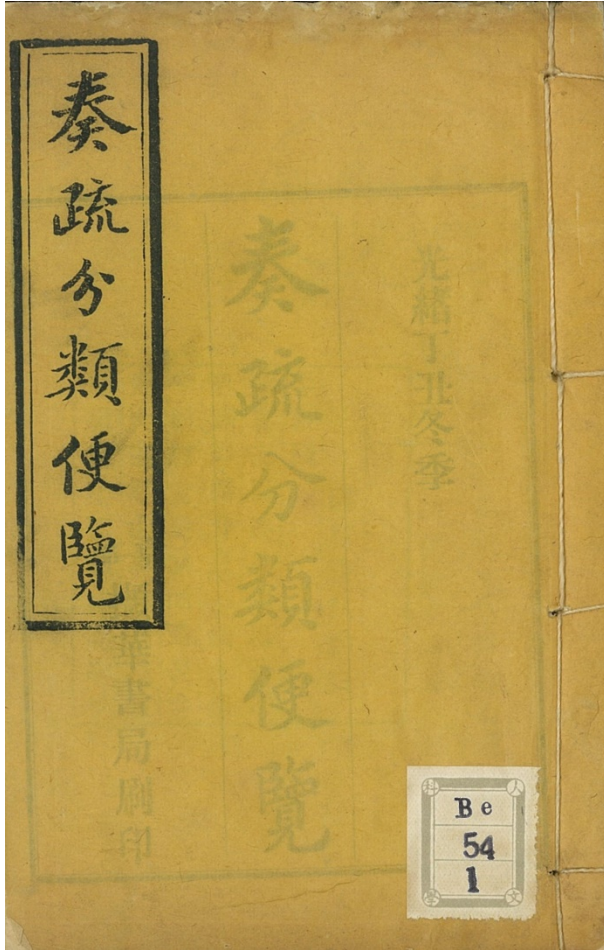 奏疏分類便覽
光緒丁丑冬季
奏疏分類便覽
華書局刷印
人文科學
Be
54
1